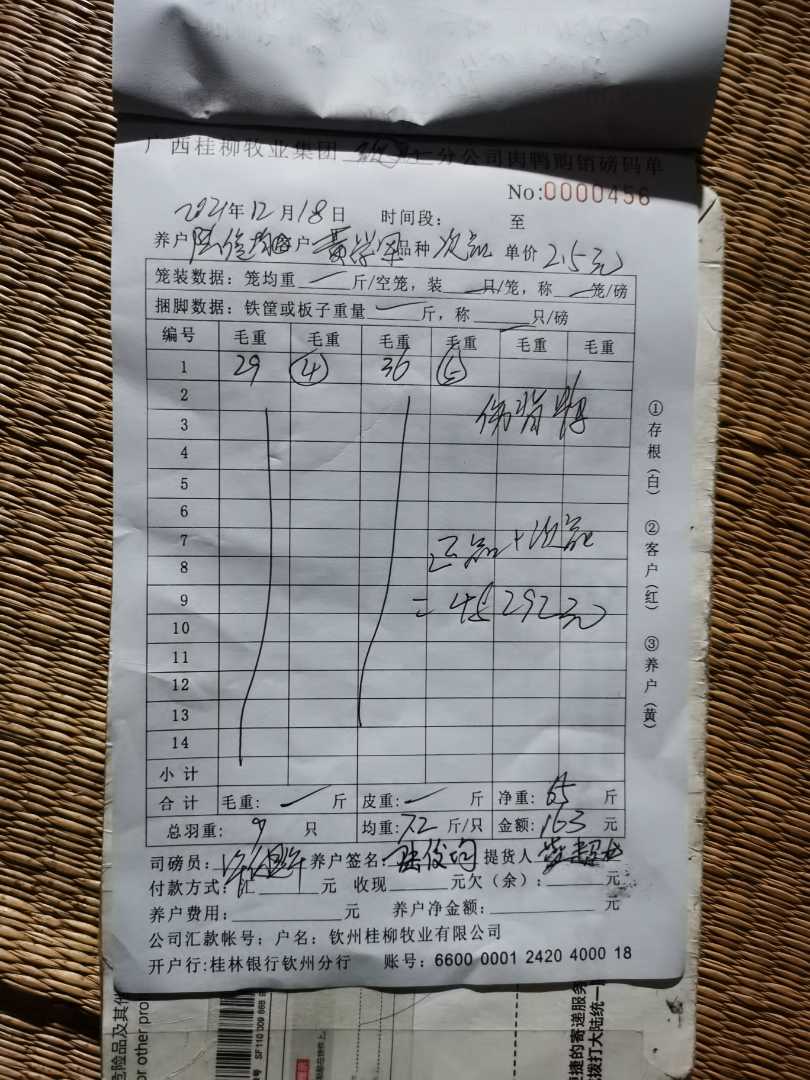 广西桂柳牧业集团 分公司肉鸭购销磅码单
No:0000456
2021年12月18日 时间段: 至
养户 户 黄学军 品种 次品 单价 2.5元
笼装数据：笼均重 — 斤/空笼，装 — 只/笼，称 — 笼/磅
捆脚数据：铁筐或板子重量 — 斤，称 — 只/磅
编号 毛重 毛重 毛重 毛重 毛重 毛重
1 29 ④ 36 ⑤
2
3
4
5
6
7 正品+次品
8
9 =48292元
10
11
12
13
14
小计
合计 毛重: 斤 皮重: 斤 净重: 65 斤
总羽重: 9 只 均重: 7.2 斤/只 金额: 163 元
司磅员: 养户签名: 陆俊均 提货人
付款方式: 汇 元 收现 元欠（余）: 元
养户费用: 元 养户净金额: 元
公司汇款帐号；户名：钦州桂柳牧业有限公司
开户行:桂林银行钦州分行 账号：6600 0001 2420 4000 18
①存根（白） ②客户（红） ③养户（黄）
危险品及其他
or other pro
SF 110 009 866
捷的寄递服务
拨打大陆统一